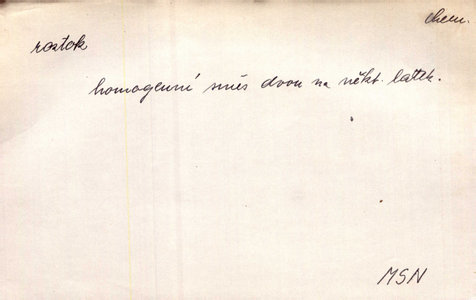 chem.
roztok
homogenní směs dvou na někt. látek.
MSN